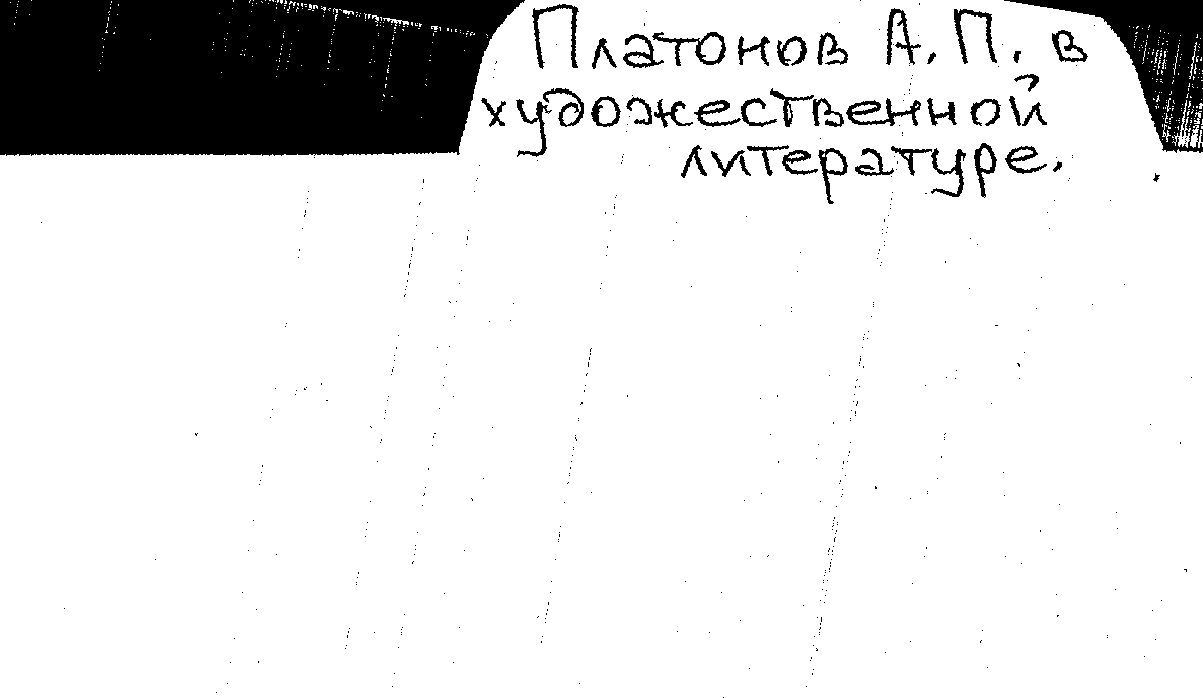 Платонов А. П. в
художественной
литературе.